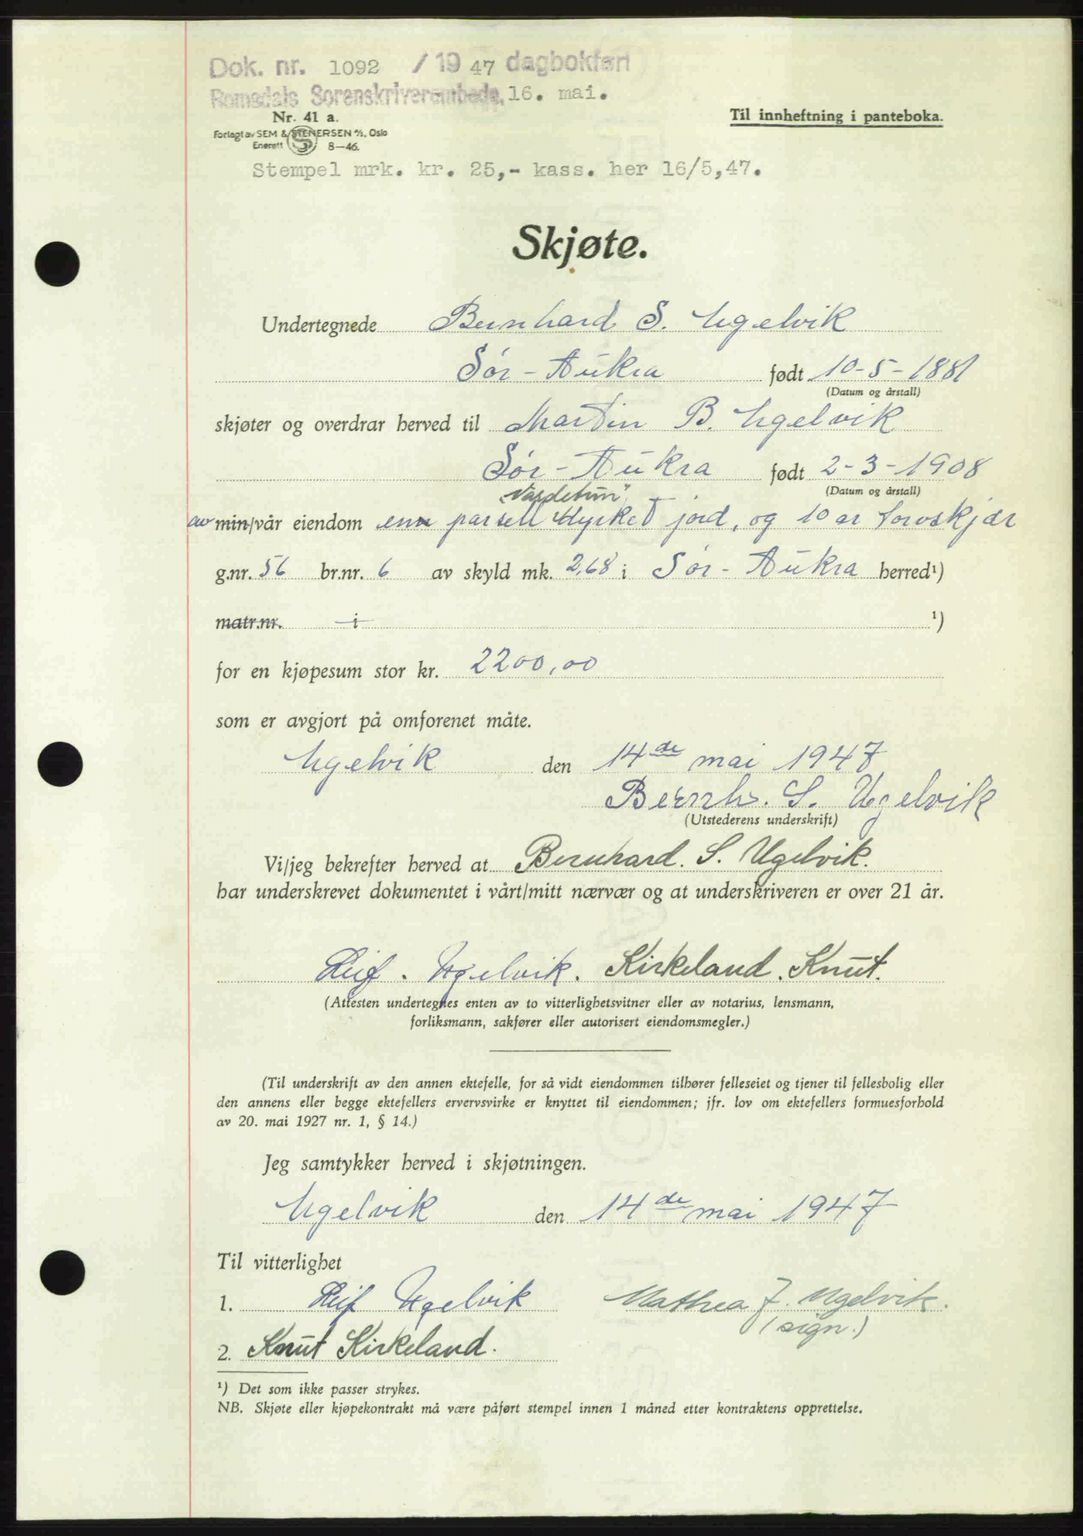 Dok. nr. 1092 / 19 47 dagbokført
Romsdals Sorenskriverembede, 16. mai.
Nr. 41 a.
Forlagt av SEM & STENERSEN A/S, Oslo
Enerett 8—46.
Til innheftning i panteboka.
Stempel mrk. kr. 25,- kass. her 16/5,47.
Skjøte.
Undertegnede Bernhard S. Ugelvik
Sør-Aukra født 10-5-1881
(Datum og årstall)
skjøter og overdrar herved til Martin B. Ugelvik
Sør-Aukra født 2-3-1908
(Datum og årstall)
"Vardetun"
av min/vår eiendom en parsell dyrket jord, og 10 ar torvskjær
g.nr. 56 br.nr. 6 av skyld mk. 2,68 i Sør-Aukra herred¹)
matr.nr. i ¹)
for en kjøpesum stor kr. 2200,00
som er avgjort på omforenet måte.
Ugelvik den 14de mai 1947
Bernh. S. Ugelvik
(Utstederens underskrift)
Vi/jeg bekrefter herved at Bernhard. S. Ugelvik.
har underskrevet dokumentet i vårt/mitt nærvær og at underskriveren er over 21 år.
Leif. Ugelvik. Kirkeland. Knut.
(Attesten undertegnes enten av to vitterlighetsvitner eller av notarius, lensmann,
forliksmann, sakfører eller autorisert eiendomsmegler.)
(Til underskrift av den annen ektefelle, for så vidt eiendommen tilhører felleseiet og tjener til fellesbolig eller
den annens eller begge ektefellers ervervsvirke er knyttet til eiendommen; jfr. lov om ektefellers formuesforhold
av 20. mai 1927 nr. 1, § 14.)
Jeg samtykker herved i skjøtningen.
Ugelvik den 14de mai 1947
Til vitterlighet
1. Leif Ugelvik Mathea J. Ugelvik.
(sign.)
2. Knut Kirkeland.
¹) Det som ikke passer strykes.
NB. Skjøte eller kjøpekontrakt må være påført stempel innen 1 måned etter kontraktens opprettelse.